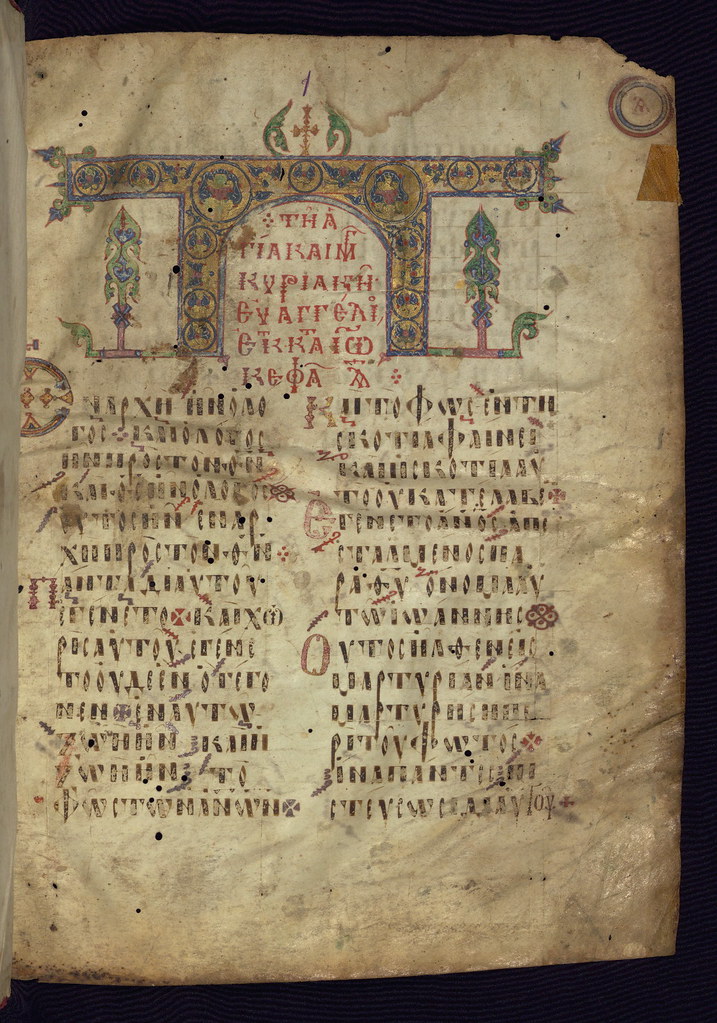 ΤΗ Α
ΓΙΑ ΚΑΙ Μ
ΚΥΡΙΑΚΗ
ΕΥΑΓΓΕΛΙ
ΕΚ Τ ΚΑΤ ΙΩ
ΚΕΦΑ Α
ΕΝ ΑΡΧΗ ΗΝ Ο ΛΟ
ΓΟC· ΚΑΙ Ο ΛΟΓΟC
ΗΝ ΠΡΟC ΤΟΝ ΘΝ
ΚΑΙ ΘC ΗΝ Ο ΛΟΓΟC
ΟΥΤΟC ΗΝ ΕΝ ΑΡ
ΧΗ ΠΡΟC ΤΟΝ ΘΝ
ΠΑΝΤΑ ΔΙ ΑΥΤΟΥ
ΕΓΕΝΕΤΟ ΚΑΙ ΧΩ
ΡΙC ΑΥΤΟΥ ΕΓΕΝΕ
ΤΟ ΟΥΔΕ ΕΝ Ο ΓΕΓΟ
ΝΕΝ ΕΝ ΑΥΤΩ
ΖΩΗ ΗΝ ΚΑΙ Η
ΖΩΗ ΗΝ ΤΟ
ΦΩC ΤΩΝ ΑΝΩΝ
ΚΑΙ ΤΟ ΦΩC ΕΝ ΤΗ
CΚΟΤΙΑ ΦΑΙΝΕΙ
ΚΑΙ Η CΚΟΤΙΑ ΑΥ
ΤΟ ΟΥ ΚΑΤΕΛΑΒΕ
ΕΓΕΝΕΤΟ ΑΝΟC ΑΠΕ
CΤΑΛΜΕΝΟC ΠΑ
ΡΑ ΘΥ ΟΝΟΜΑ ΑΥ
ΤΩ ΙΩΑΝΝΗC
ΟΥΤΟC ΗΛΘΕΝ ΕΙC
ΜΑΡΤΥΡΙΑΝ ΙΝΑ
ΜΑΡΤΥΡΗCΗ ΠΕ
ΡΙ ΤΟΥ ΦΩΤΟC
ΙΝΑ ΠΑΝΤΕC ΠΙ
CΤΕΥCΩCΙ ΔΙ ΑΥΤΟΥ